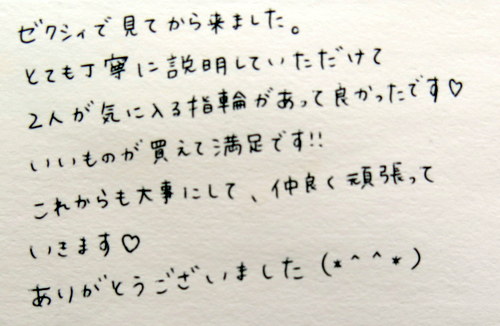 ゼクシィで見てから来ました。
とても丁寧に説明していただけて
2人が気に入る指輪があって良かったです♡
いいものが買えて満足です!!
これからも大事にして、仲良く頑張って
いきます♡
ありがとうございました(*^^*)